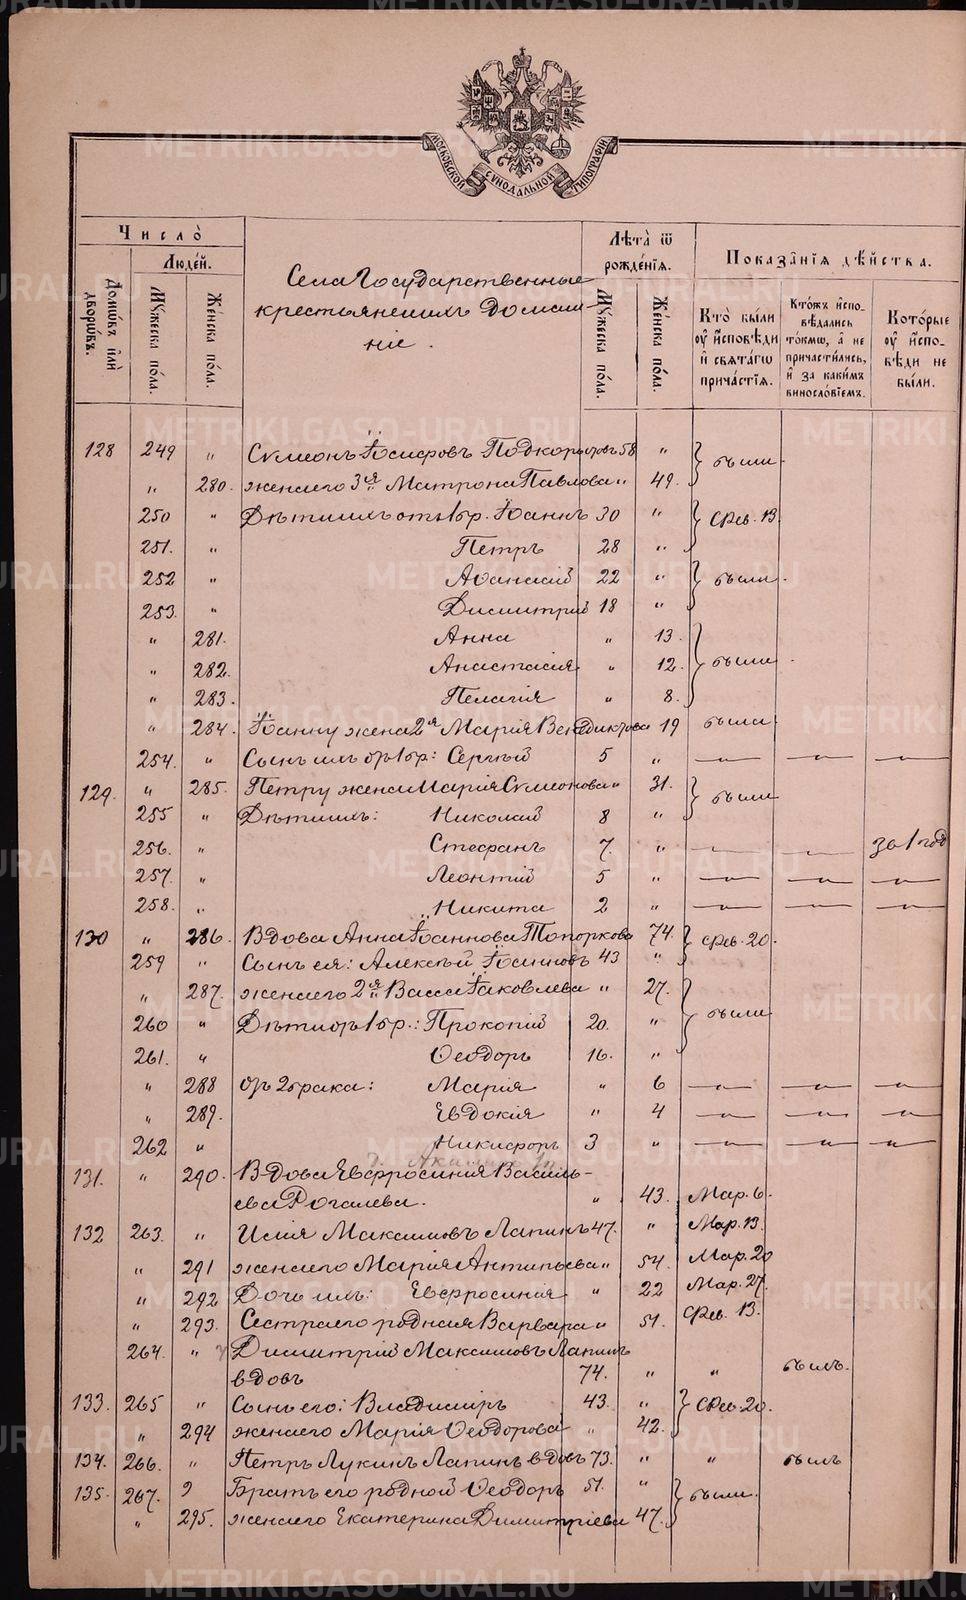 МОСКОВСКОЙ СѴНОДАЛЬНОЙ ТИПОГРАФІИ
Число̀
Людей.
Домѡвъ и҆лѝ дворѡвъ.
Мꙋжеска по́ла.
Же́нска по́ла.
Села Государственные
крестьянешихъ домаш
ніе.
Лѣта̀ ѿ
рожде́нїѧ.
Мꙋжеска по́ла.
Же́нска по́ла.
Показа́нїѧ дѣ́йства.
Кто̀ бы́ли
оу҆ и҆сповѣди
и҆ свѧта́гѡ
прича́стїѧ.
Кто́жъ и҆спо-
вѣ́дались
то́кмѡ, а҆ не
причасти́лись,
и҆ за каки́мъ
винослѡ́вїемъ.
Кото́рые
оу҆ и҆спо-
вѣди не
бы́ли.
128 249 " Сѵмеонъ Іосифовъ Подкорытовъ 58 " были
" 280. жена его 3я Матрона Павлова " 49.
250 " Дѣти ихъ отъ 1 бр. Іоаннъ 30 " Фев. 13.
251. " Петръ 28 "
252 " Аѳанасій 22 " были
253. " Димитрій 18 "
" 281. Анна " 13. были
" 282. Анастасія " 12.
" 283. Пелагія " 8.
" 284. Іоанну жена 2я Марія Венедиктова 19 была
254. " Сынъ ихъ отъ 1 бр: Сергѣй 5 " — " — — " — — " —
129. " 285. Петру жена Марія Сѵмеонова " 31. были
255 " Дѣти ихъ: Николай 8 "
256. " Стефанъ 7. " — " — — " — за 1 год
257. " Леонтій 5 " — " — — " — — " —
258. " Никита 2 " — " — — " — — " —
130 " 286. Вдова Анна Іоаннова Топоркова 74. Фев. 20.
259 " Сынъ ея: Алексѣй Іоанновъ 43 "
" 287. жена его 2я Васса Іаковлева " 27. были
260 " Дѣти отъ 1 бр.: Прокопій 20. "
261. " Ѳеодоръ 16. "
" 288 отъ 2 брака: Марія " 6 — " — — " — — " —
" 289. Евдокія " 4 — " — — " — — " —
262 " Никифоръ 3 " — " — — " — — " —
131. " 290. Вдова Евфросинія Василь-
ева Рогалева. " 43. Мар. 6.
132 263. " Илія Максимовъ Лапинъ 47. " Мар. 13.
" 291 жена его Марія Антипьева " 54. Мар. 20
" 292 Дочь ихъ: Евфросинія " 22 Мар. 27.
" 293. Сестра его родная Варвара " 51. Фев. 13.
264. " Димитрій Максимовъ Лапинъ
вдовъ 74. " " былъ.
133. 265 " Сынъ его: Владиміръ 43. " Фев. 20.
" 294 жена его Марія Ѳеодорова " 42.
134. 266. " Петръ Лукинъ Лапинъ вдовъ 73. " " былъ
135. 267. " Братъ его родной Ѳеодоръ 51. " были.
" 295. жена его Екатерина Димитріева 47.
METRIKI.GASO-URAL.RU